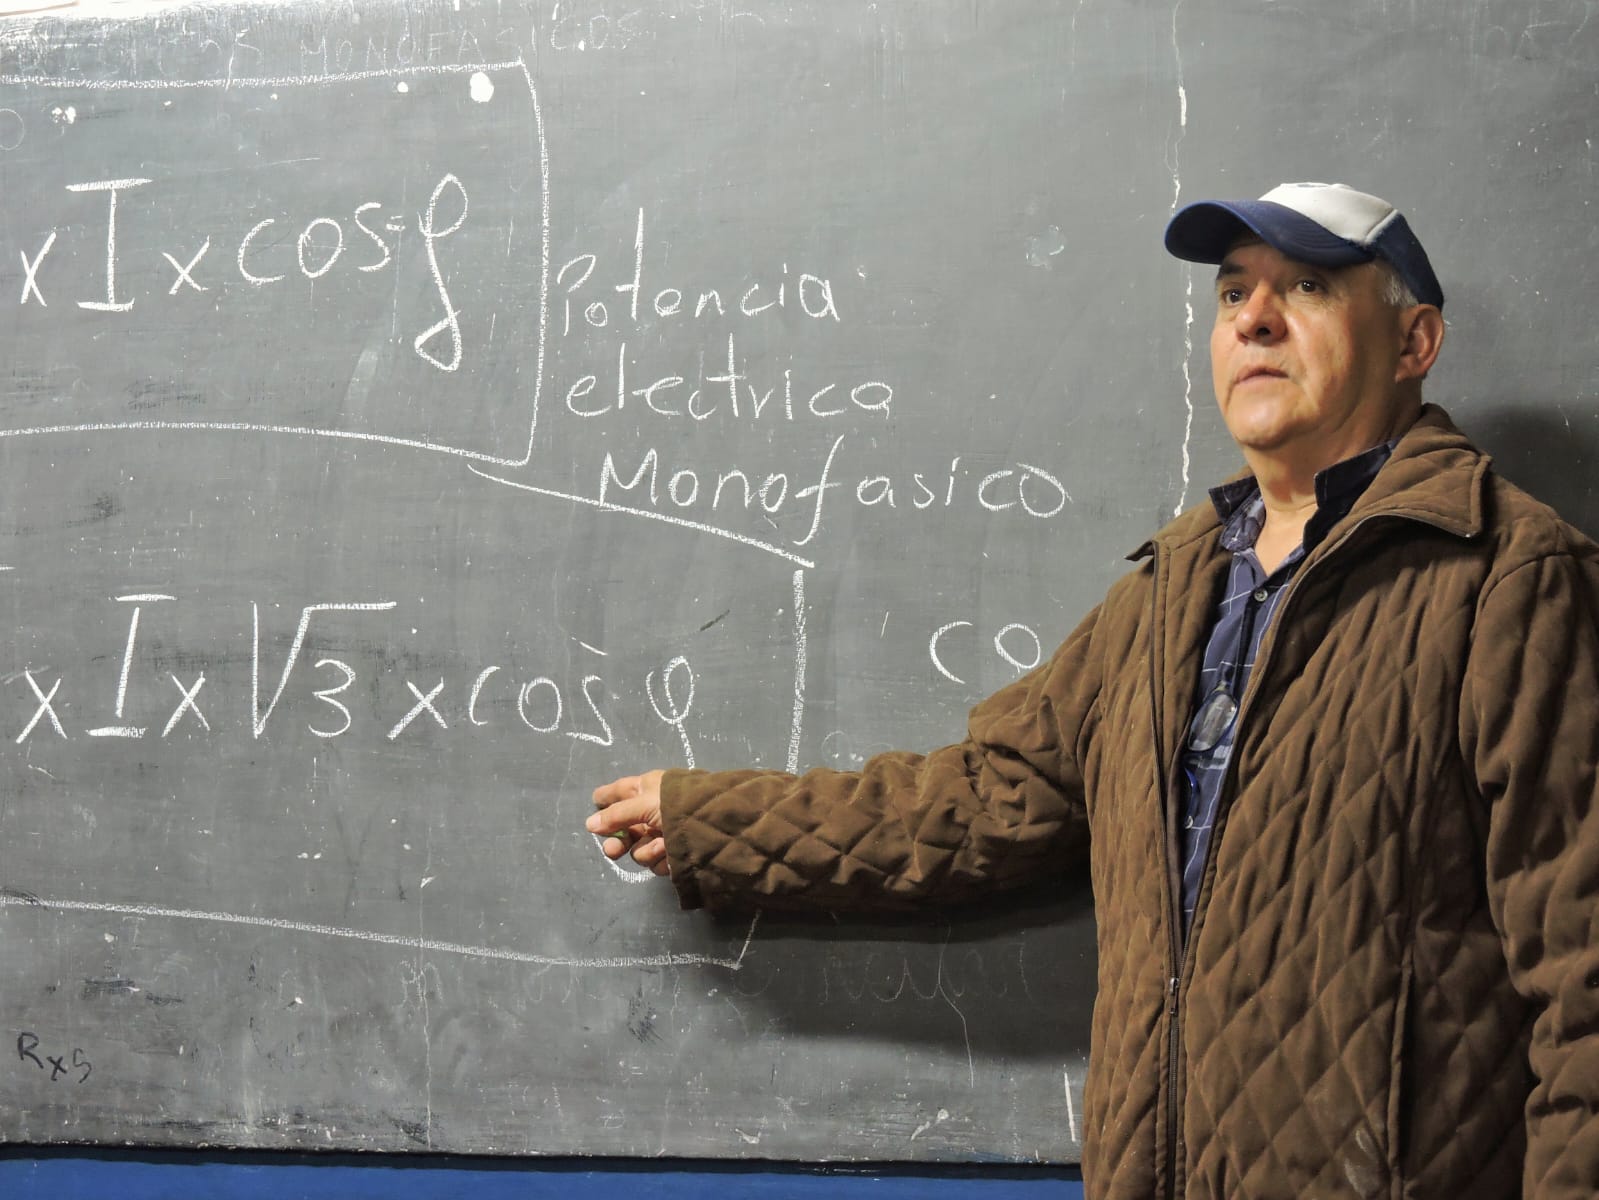 MONOFASICOS
x I x cos φ
Potencia
electrica
Monofásico
x I x √3 x cos φ
co
RxS